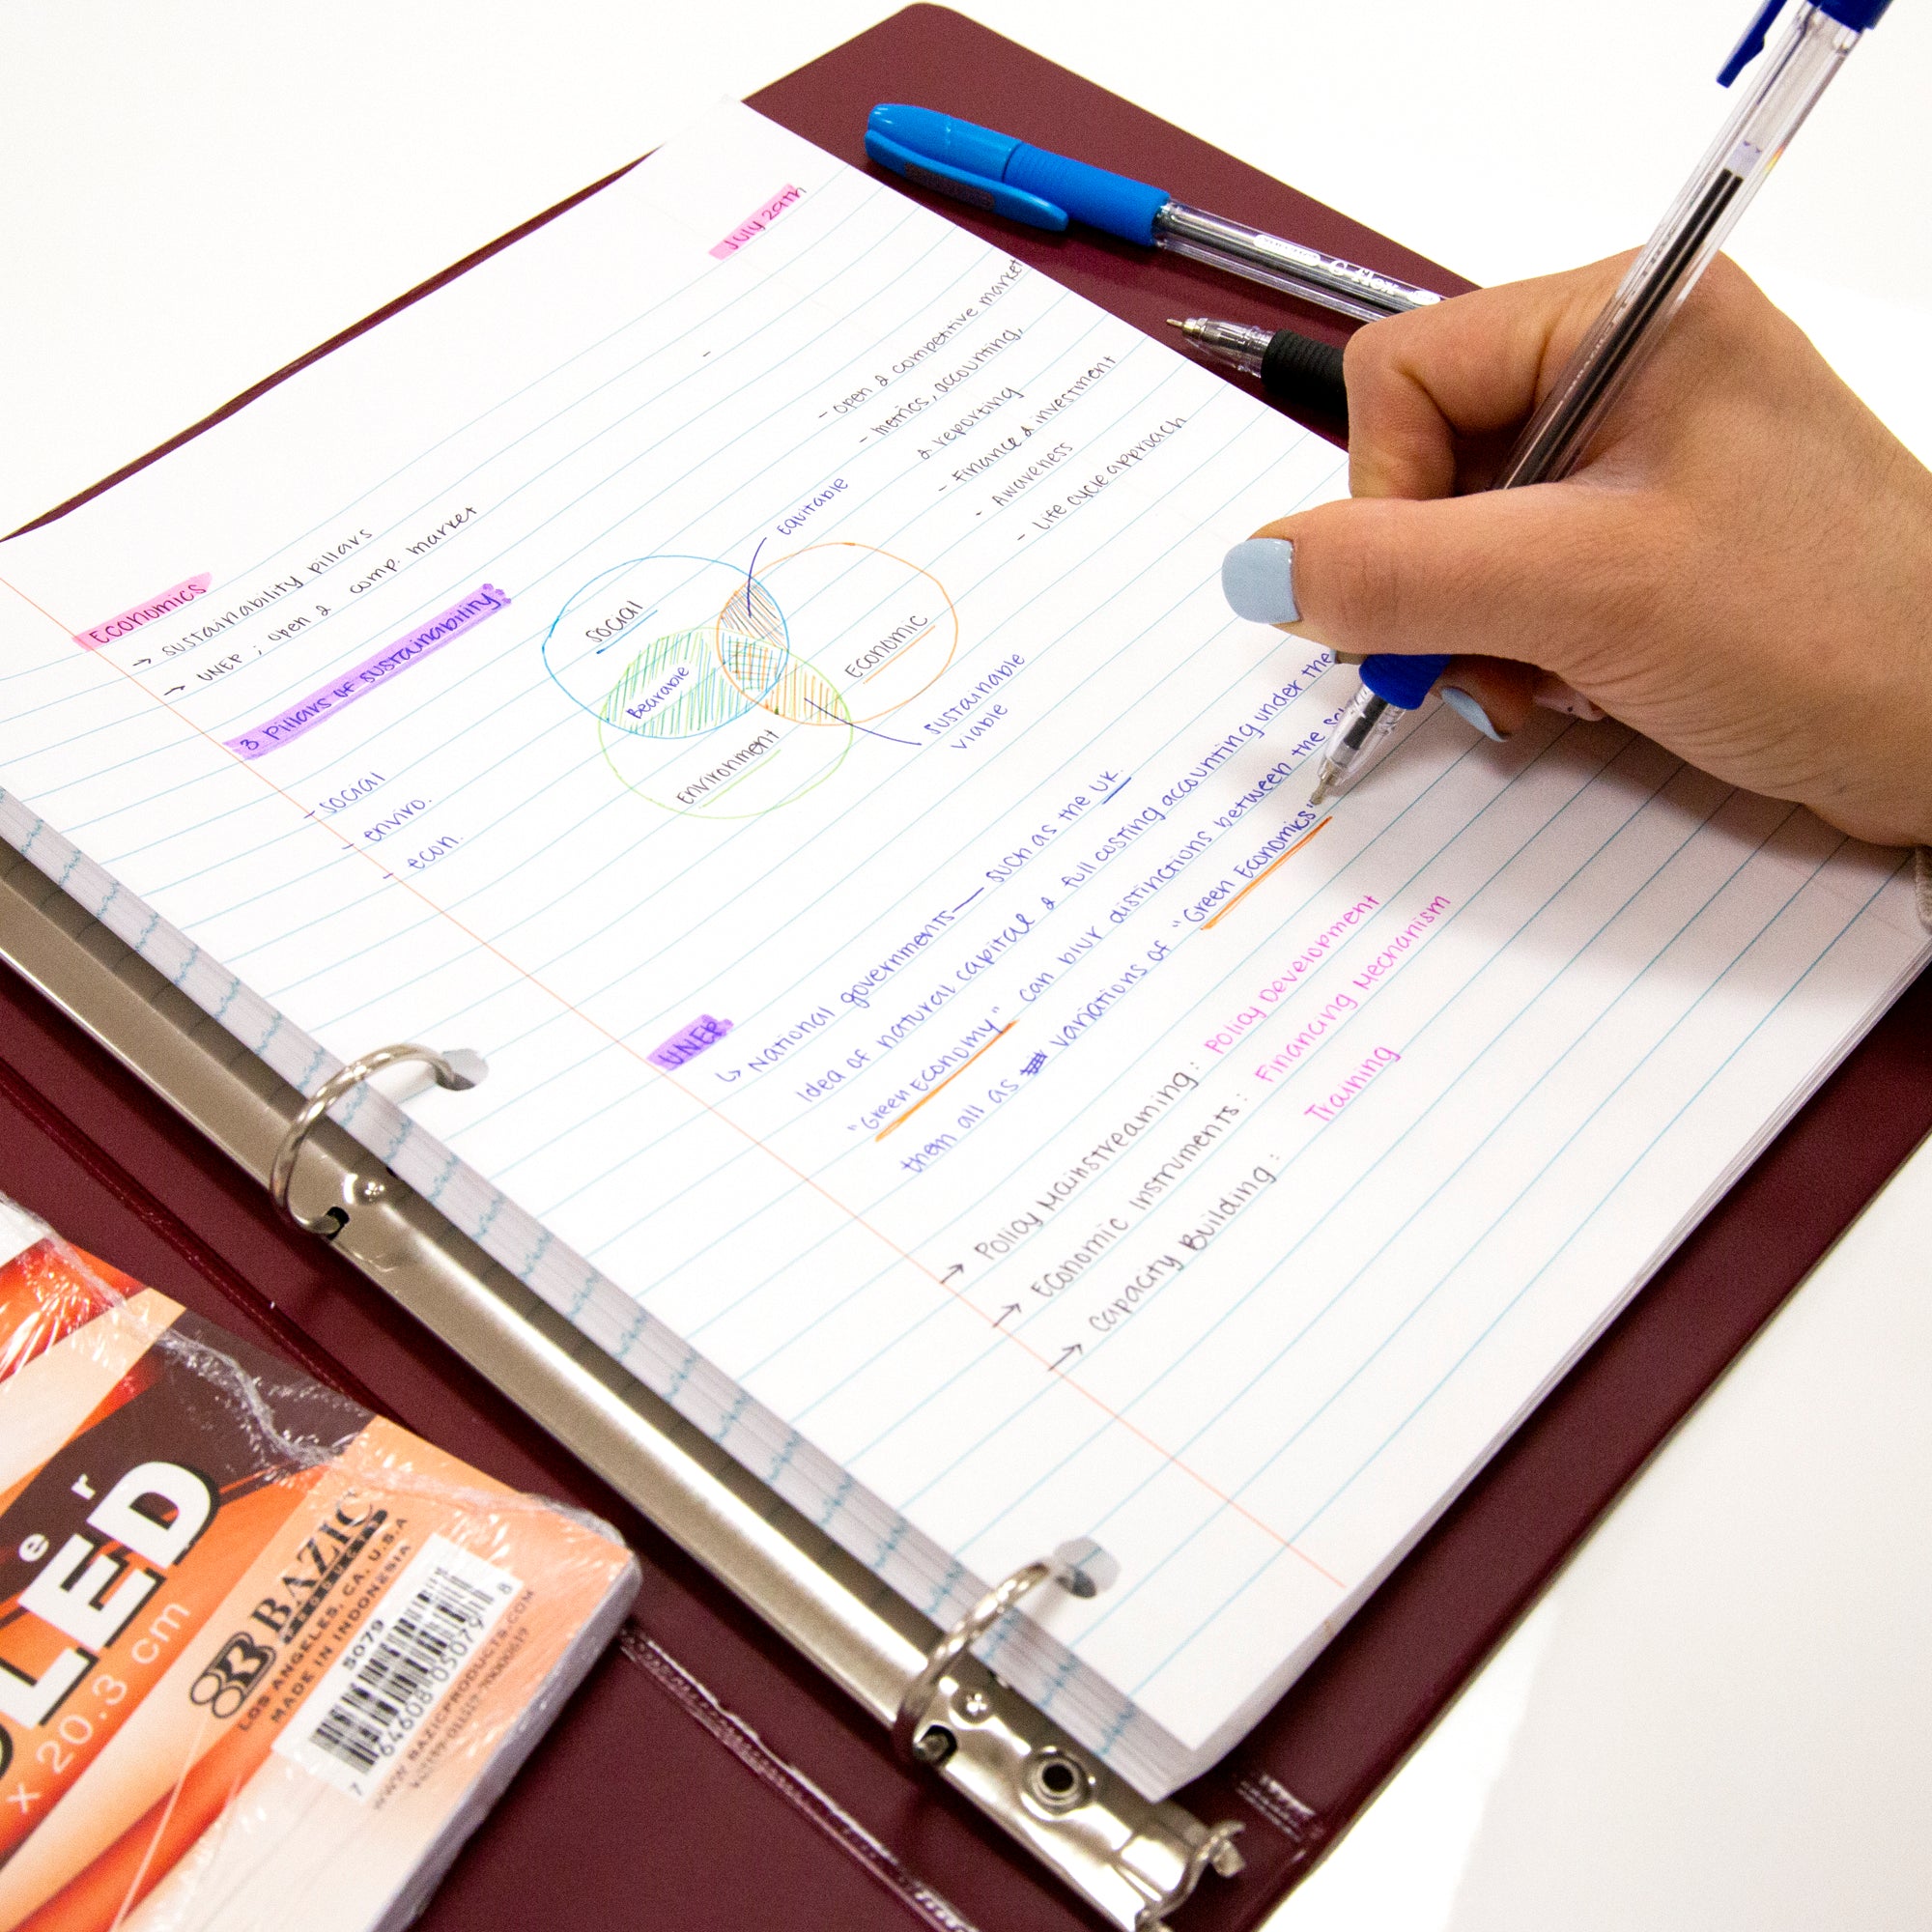 July 29th
Economics
→ sustainability pillars
→ UNEP ; open & comp. market
3 Pillars of sustainability
- social
- enviro.
- econ.
social
Economic
Environment
Bearable
Equitable
sustainable
viable
- open & competitive market
- metrics, accounting,
& reporting
- Finance & investment
- Awareness
- Life cycle approach
UNEP
↳ National governments — such as the UK.
Idea of natural capital & full costing accounting under the
"Green Economy" can blur distinctions between the
them all as variations of "Green Economics"
→ Policy Mainstreaming : Policy Development
→ Economic Instruments : Financing Mechanism
→ Capacity Building : Training
G-Flex
er
LED
x 20.3 cm
BAZIC
PRODUCTS
LOS ANGELES, CA, U.S.A
MADE IN INDONESIA
5079
7 64608 05079 8
WWW.BAZICPRODUCTS.COM